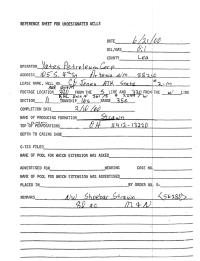 REFERENCE SHEET FOR UNDESIGNATED WELLS
DATE 6/21/00
OIL/GAS Oil
COUNTY Lea
OPERATOR Yates Petroleum Corp
ADDRESS 105 S. 4th St Artesia NM 88210
LEASE NAME, WELL NO.
FOOTAGE LOCATION FROM THE S LINE AND 330 FROM THE W LINE
SECTION 11 TOWNSHIP 16s RANGE 35E
COMPLETION DATE
NAME OF PRODUCING FORMATION Strawn
TOP OF PERFORATIONS
DEPTH TO CASING SHOE
C-123 FILED
NAME OF POOL FOR WHICH EXTENSION WAS ASKED
ADVERTISED FOR HEARING CASE NO.
NAME OF POOL FOR WHICH EXTENSION WAS ADVERTISED
PLACED IN BY ORDER NO. R-
REMARKS NW Shoebar Strawn
80 ac